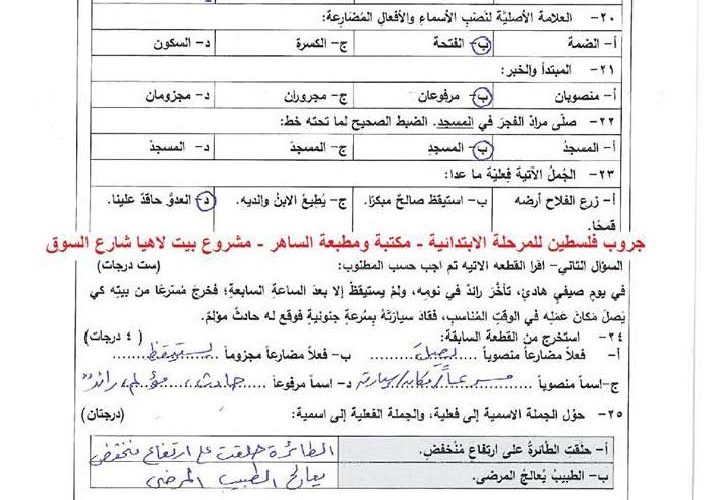 ٢٠- العلامة الأصليّة لنَصْبِ الأسماءِ والأفعالِ المُضَارِعة:
أ- الضمة ب- الفتحة ج- الكسرة د- السكون
٢١- المبتدأ والخبر:
أ- منصوبان ب- مرفوعان ج- مجروران د- مجزومان
٢٢- صلّى مرادٌ الفجرَ في المسجد. الضبط الصحيح لما تحته خط:
أ- المسجدُ ب- المسجدِ ج- المسجدَ د- المسجدْ
٢٣- الجُملُ الآتية فِعليّة ما عدا:
أ- زرع الفلاح أرضه قمحًا. ب- استيقظ صالحٌ مبكرًا. ج- يُطِيعُ الابنُ والديه. د- العدوُّ حاقدٌ علينا.
جروب فلسطين للمرحلة الابتدائية - مكتبة ومطبعة الساهر - مشروع بيت لاهيا شارع السوق
السؤال الثاني- اقرأ القطعه الاتيه ثم اجب حسب المطلوب: (ست درجات)
في يومٍ صيفيٍّ هادئٍ، تأخَّرَ رائدٌ في نومِه، ولمْ يستيقظْ إلا بعدَ الساعةِ السابعةِ؛ فخرجَ مُسرعًا من بيتِه كي
يَصلَ مَكانَ عَمَلِه في الوقتِ المُناسبِ، فقادَ سيارتَهُ بِسُرعةٍ جنونيةٍ فوقع له حادثٌ مؤلمٌ.
٢٤- استخرج من القطعة السابقة: (٤ درجات)
أ- فعلاً مضارعاً منصوباً يصلَ ب- فعلاً مضارعاً مجزوماً يستيقظْ
ج- اسماً منصوباً مسرعاً/مكان/سيارته د- اسماً مرفوعاً حادث، مؤلم، رائد
٢٥- حوّل الجملة الاسمية إلى فعلية، والجملة الفعلية إلى اسمية: (درجتان)
أ- حلّقت الطّائرةُ على ارتفاعٍ مُنْخفضٍ. الطائرة حلقت على ارتفاع منخفض
ب- الطبيبُ يُعالجُ المرضى. يعالج الطبيب المرضى